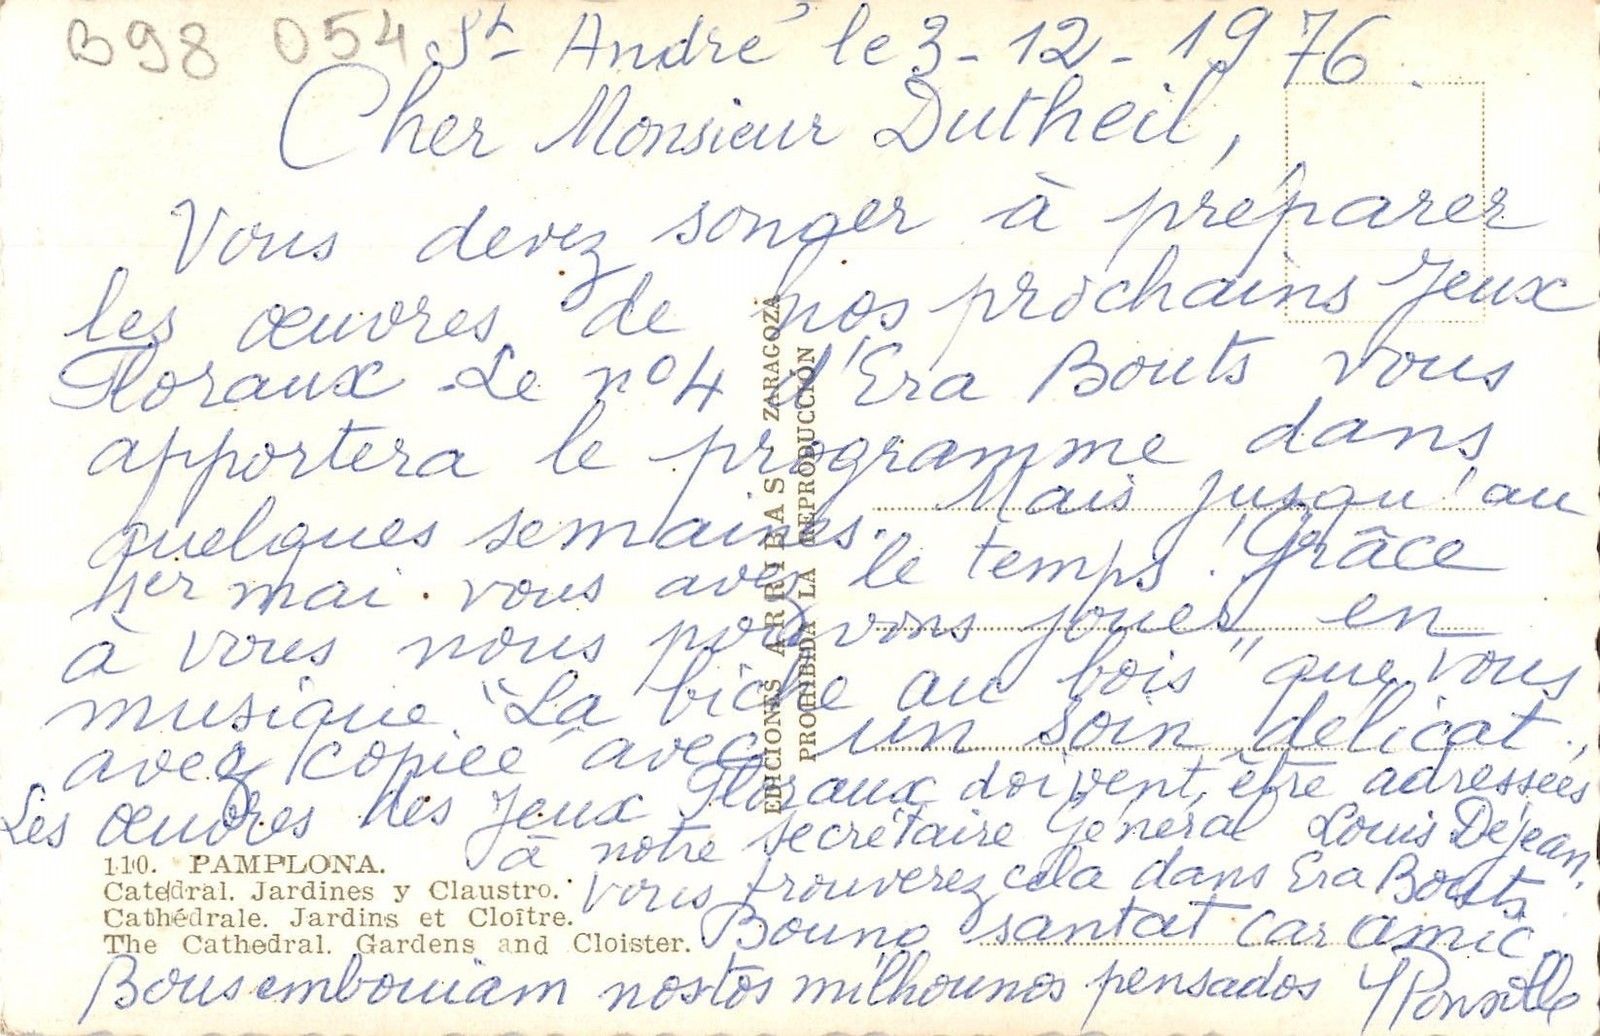 B98 054
St André le 3-12-1976.
Cher Monsieur Dutheil,
Vous devez songer à préparer
les œuvres de nos prochains Jeux
Floraux. Le n°4 d'Era Bouts vous
apportera le programme dans
quelques semaines. Mais jusqu'au
1er mai vous avez le temps! Grâce
à vous nous pouvons jouer, en
musique "La biche au bois" que vous
avez copiée avec un soin délicat.
Les œuvres des Jeux Floraux doivent être adressées
à notre secrétaire Général Louis Déjean.
Vous trouverez cela dans Era Bouts
Bouno santat car amic.
Bous embouiam nostos milhounos pensados
EDICIONES ARRIBAS ZARAGOZA
PROHIBIDA LA REPRODUCCIÓN
110. PAMPLONA.
Catedral. Jardines y Claustro.
Cathédrale. Jardins et Cloître.
The Cathedral. Gardens and Cloister.